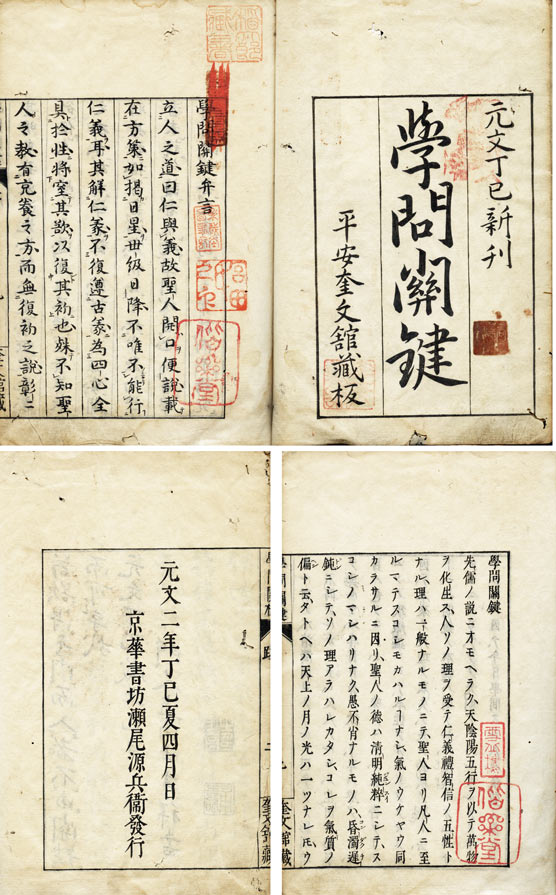 元文丁巳新刊
學問關鍵
平安奎文舘藏板
學問關鍵弁言
立人之道曰仁與義故聖人開口便說載
在方策如揭日星世級日降不唯不能行
仁義耳其解仁義不復遵古義為四心全
具於性將窒其欲以復其初也殊不知聖
人之教有充養之方而無復初之說彰〻
學問關鍵
先儒ノ説ニオモヘラク、天陰陽五行ヲ以テ萬物
ヲ化生ス、人ソノ理ヲ受テ仁義禮智信ノ五性ト
ナル、理ハ一般ナルモノニテ聖人ヨリ凡人ニ至
ルマテスコシモカハルヿナシ、氣ノウケヤウ同
カラサルニ因リ、聖人ノ德ハ清明純粹ニシテ、ス
コシノマシハリナク、愚不肖ナルモノハ、昏濁遅
鈍ニシテ、ソノ理アラハレカタシ、コレヲ氣質ノ
偏ト云、タトヘハ天上ノ月ノ光ハ一ツナレモ、ウ
奎文舘藏
元文二年丁巳夏四月日
京華書坊瀨尾源兵衞發行
學問關鍵
奎文舘藏
偕樂堂